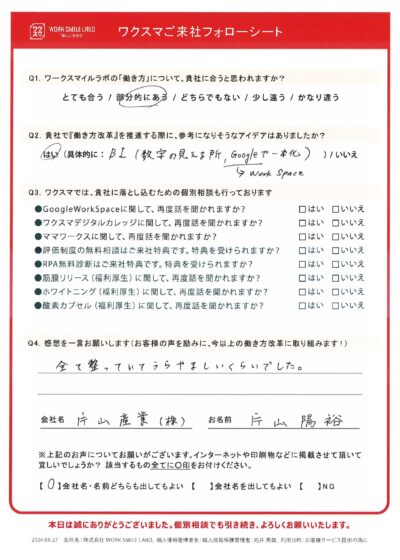 WORK SMILE LABO
ワクスマご来社フォローシート
Q1. ワークスマイルラボの「働き方」について、貴社に合うと思われますか?
とても合う / 部分的にある / どちらでもない / 少し違う / かなり違う
Q2. 貴社で『働き方改革』を推進する際に、参考になりそうなアイデアはありましたか?
はい (具体的に: BI (数字の見える所, Googleで一本化) ) / いいえ
→ Work Space
Q3. ワクスマでは、貴社に落とし込むための個別相談も行っております
●GoogleWorkSpaceに関して、再度話を聞かれますか? □はい □いいえ
●ワクスマデジタルカレッジに関して、再度話を聞かれますか? □はい □いいえ
●ママワークスに関して、再度話を聞かれますか? □はい □いいえ
●評価制度の無料相談はご来社特典です。特典を受けられますか? □はい □いいえ
●RPA無料診断はご来社特典です。特典を受けますか? □はい □いいえ
●筋膜リリース(福利厚生)に関して、再度話を聞かれますか? □はい □いいえ
●ホワイトニング(福利厚生)に関して、再度話を聞かれますか? □はい □いいえ
●酸素カプセル(福利厚生)に関して、再度話を聞かれますか? □はい □いいえ
Q4. 感想を一言お願いします(お客様の声を励みに、今以上の働き方改革に取り組みます!)
全て整っていてうらやましいくらいでした。
会社名 片山産業(株) お名前 片山陽裕
※上記のお声についてお願いがございます。インターネットや印刷物などに掲載させて頂いて
宜しいでしょうか? 該当するもの全てに〇印をお付けください。
【 0 】会社名・名前どちらも出してもよい 【 】会社名だけ出してもよい 【 】NG
本日は誠にありがとうございました。個別相談でも引き続き、よろしくお願いいたします。
2024.06.27 【会社名:株式会社 WORK SMILE LABO、個人情報管理者名:個人情報保護管理者:石井 秀雄、利用目的:お客様サービス提供の為に